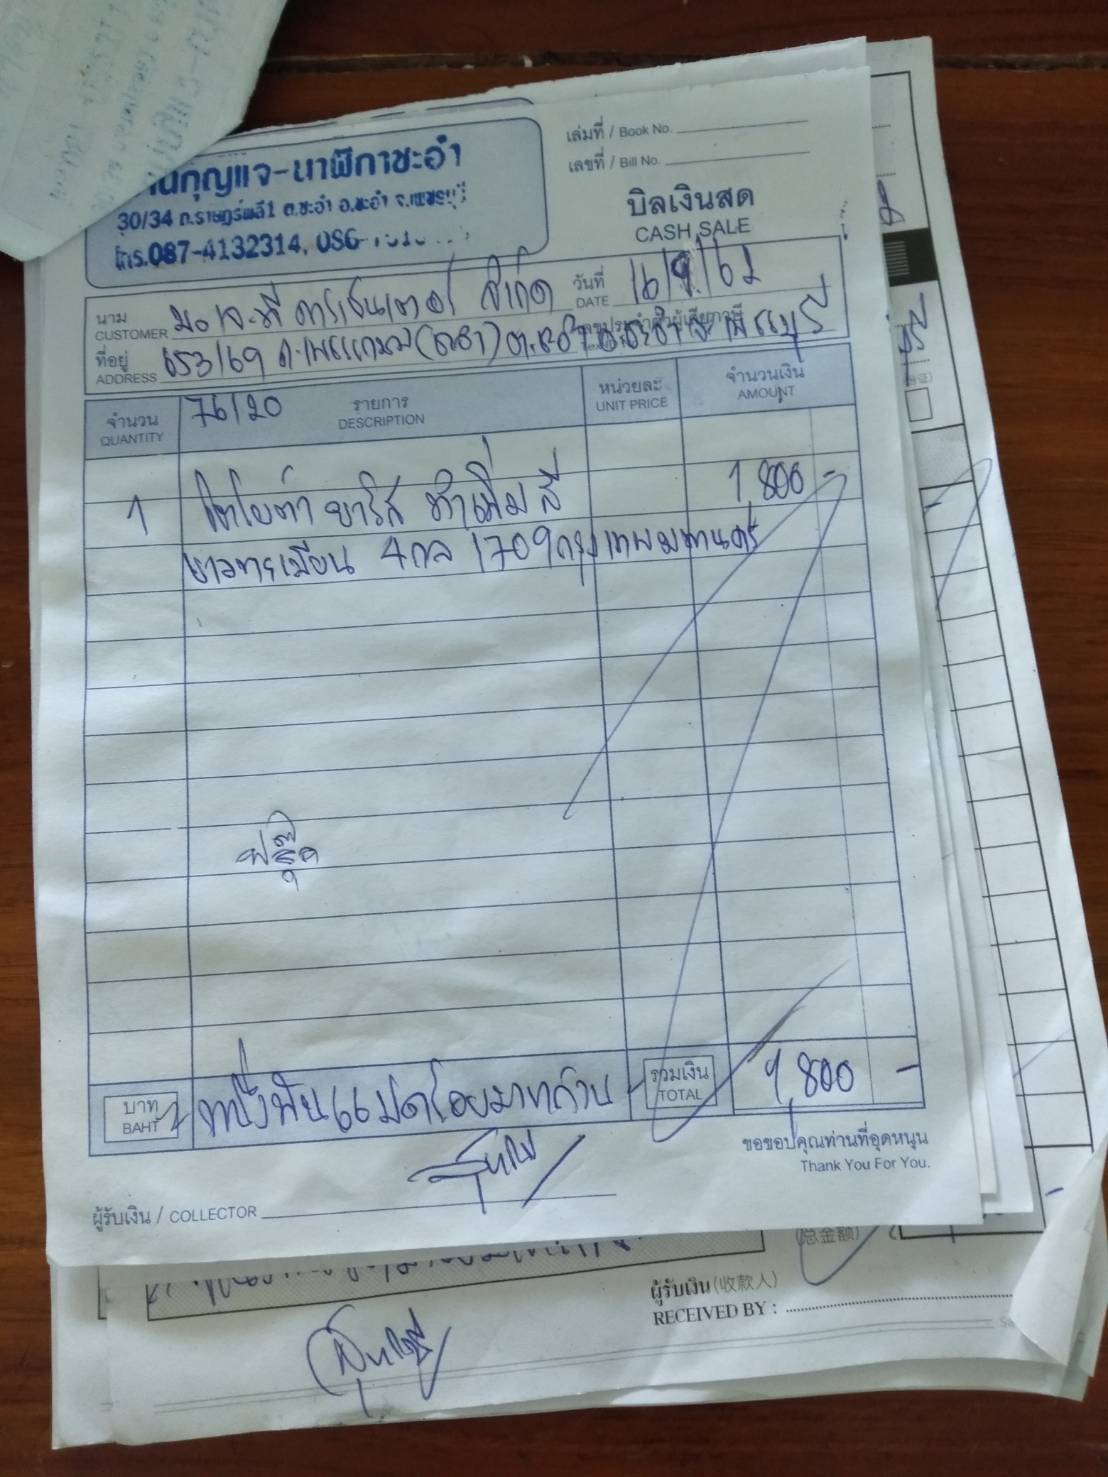 กุญแจ-นาฬิกาชะอำ
30/34 ถ.ราษฎร์พลี1 ต.ชะอำ อ.ชะอำ จ.เพชรบุรี
โทร.087-4132314, 086-
เล่มที่ / Book No.
เลขที่ / Bill No.
บิลเงินสด
CASH SALE
นาม
CUSTOMER
คาร์เซ็นเตอร์ จำกัด
วันที่
DATE
16/9/62
ที่อยู่
ADDRESS
653/69 ถ.เพชรเกษม ต.ชะอำ อ.ชะอำ จ.เพชรบุรี
เลขประจำตัวผู้เสียภาษี
จำนวน
QUANTITY
76120
รายการ
DESCRIPTION
หน่วยละ
UNIT PRICE
จำนวนเงิน
AMOUNT
1 โตโยต้า ยาริส ทำเพิ่ม 1,800 -
ทะเบียน 4กล 1709 กรุงเทพมหานคร
บาท
BAHT
หนึ่งพันแปดร้อยบาทถ้วน
รวมเงิน
TOTAL
1,800 -
ขอขอบคุณท่านที่อุดหนุน
Thank You For You.
ผู้รับเงิน / COLLECTOR
(总金额)
ผู้รับเงิน (收款人)
RECEIVED BY :